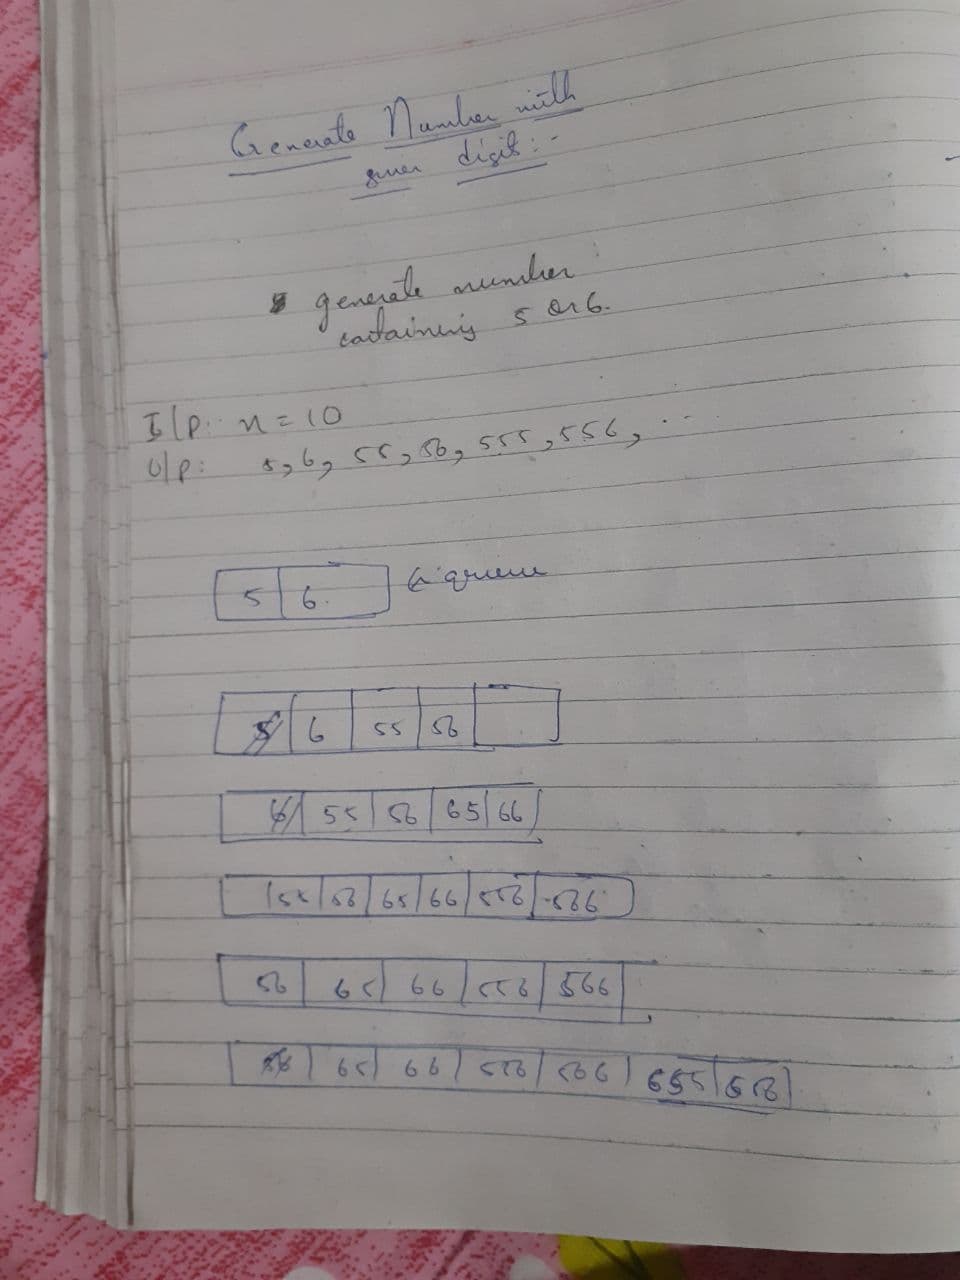 Generate Number with
given digit:-
generate number
containing 5 or 6.
I/p: n = 10
O/p: 5, 6, 55, 56, 555, 556, ..
5 6. queue
5 6 55 56
6 55 56 65 66
55 56 65 66 556 566
56 65 66 556 566
56 65 66 556 566 655 656